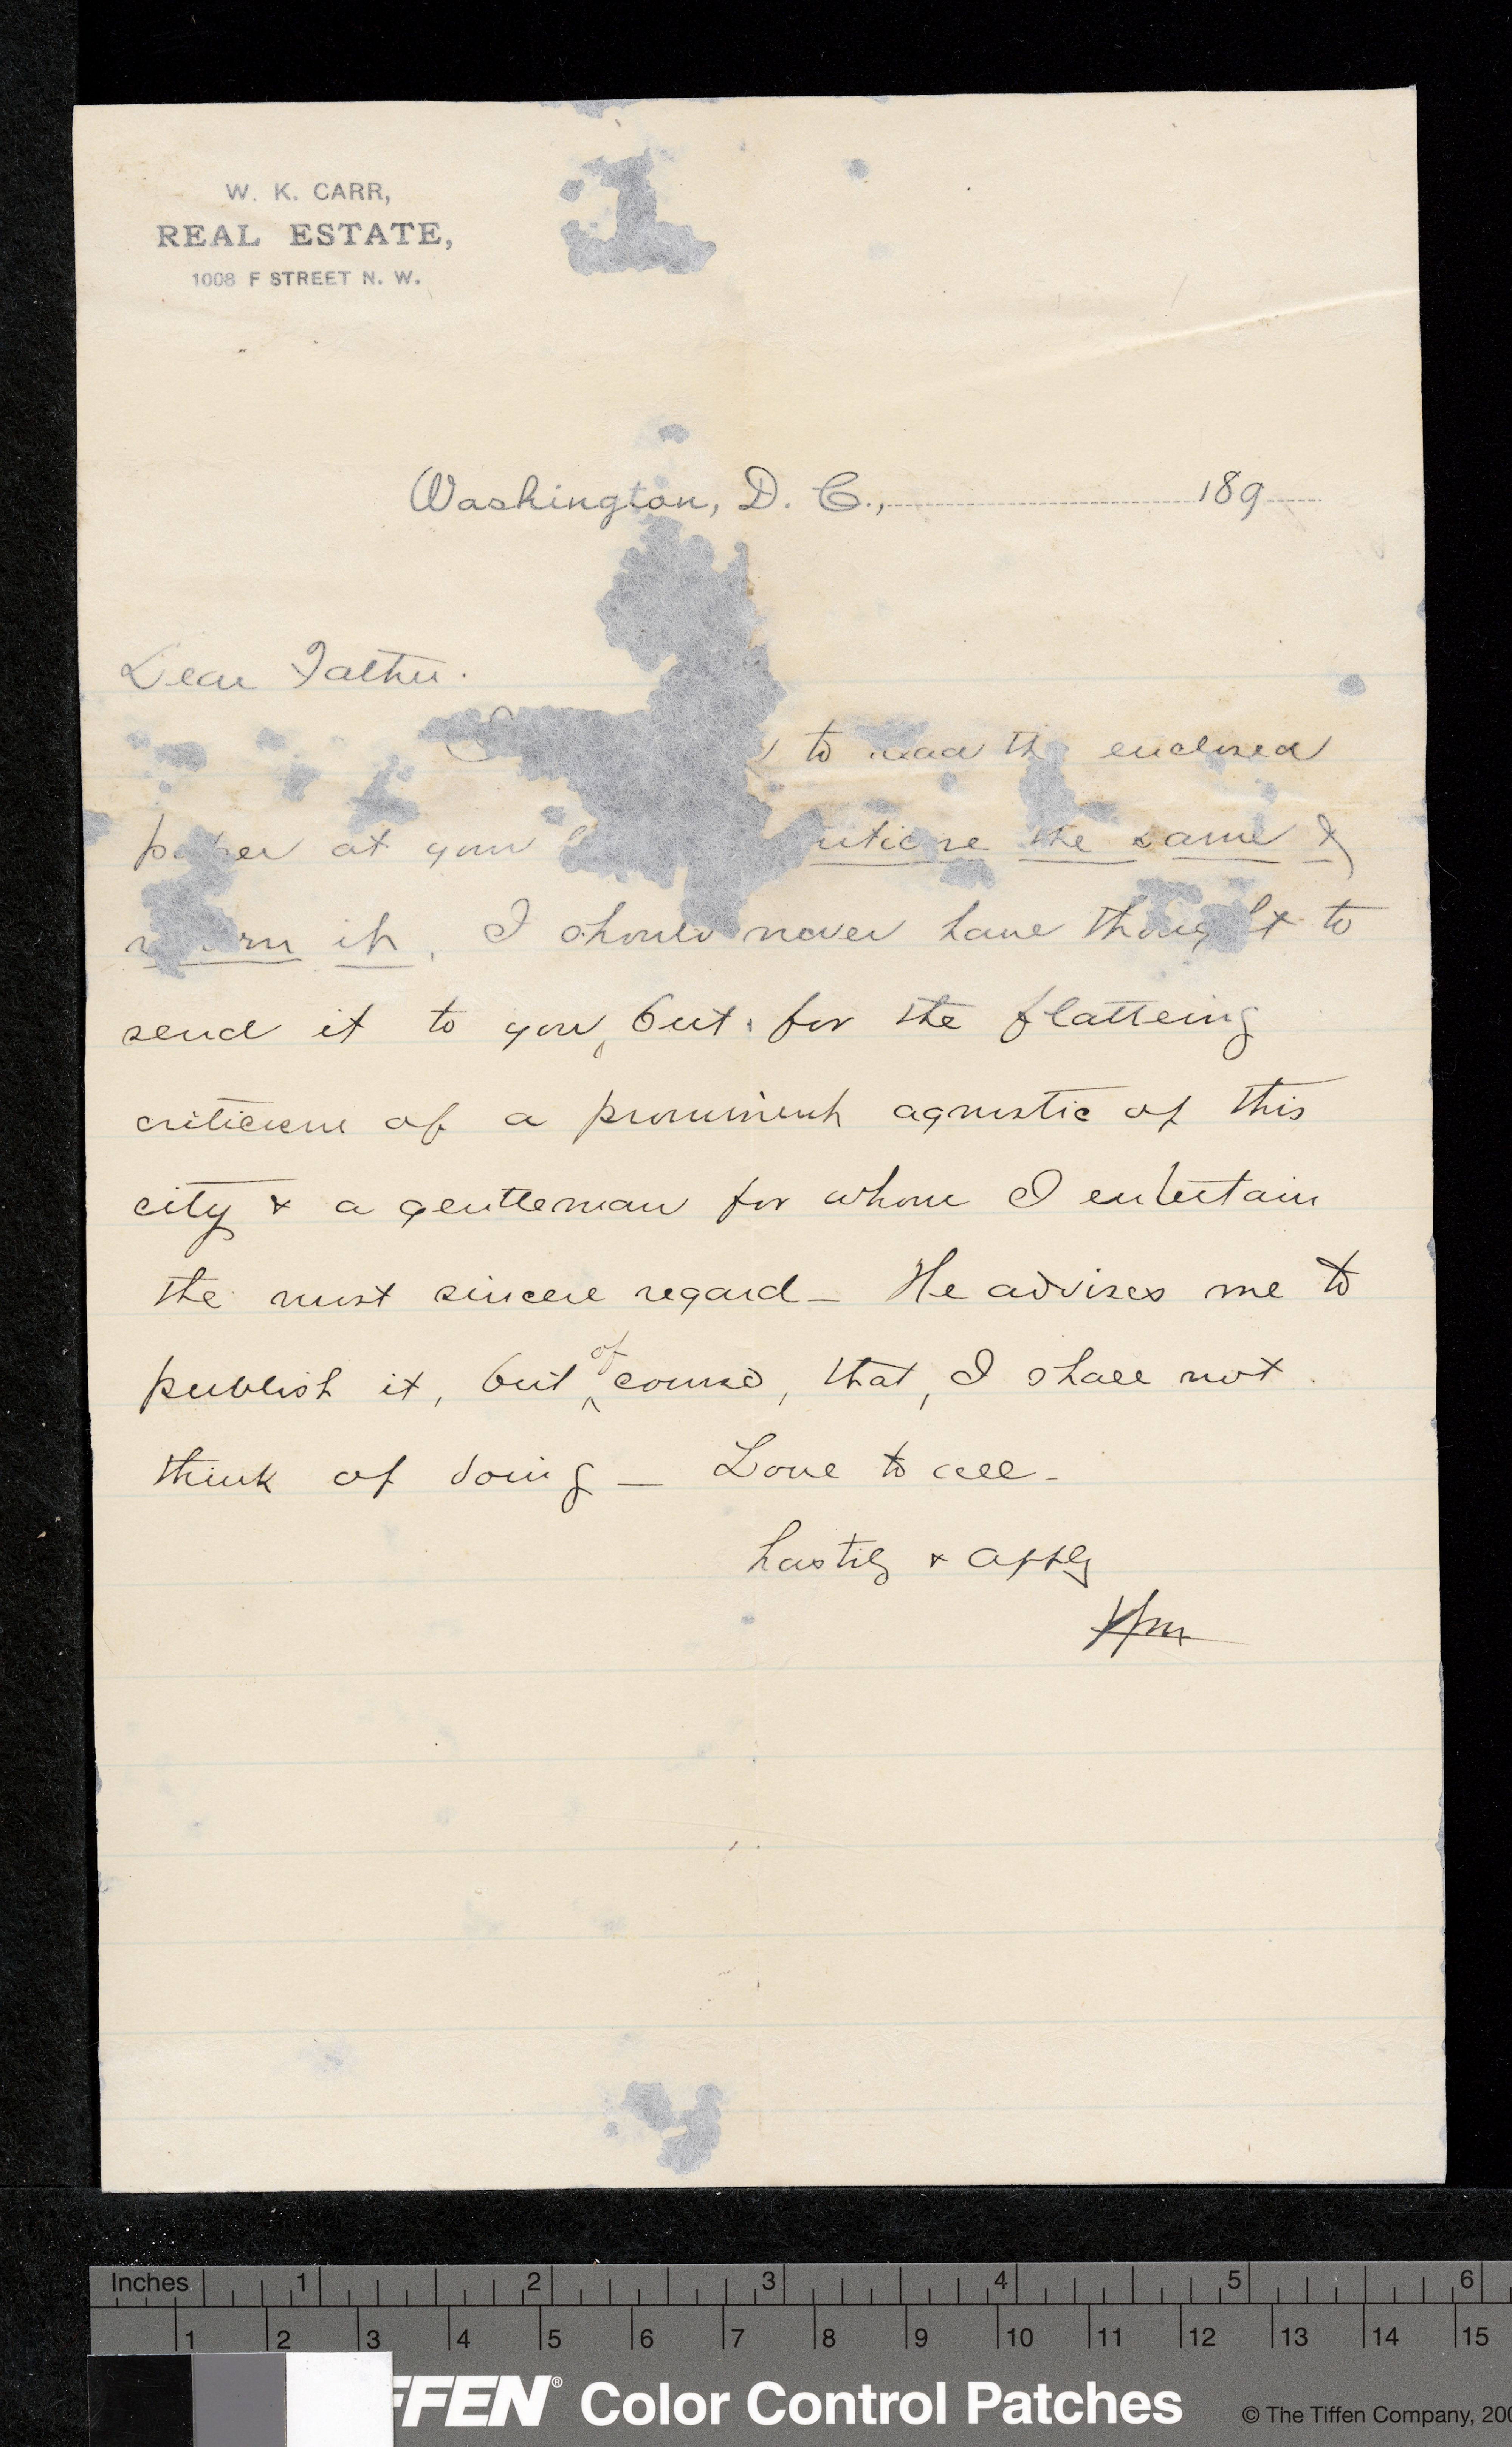 W. K. CARR,
REAL ESTATE,
1008 F STREET N. W.
Washington, D. C., 189
Dear Father.
to read the enclosed
paper at your the same &
return it. I should never have thought to
send it to you, but for the flatteing
criticism of a prominent agnostic of this
city & a gentleman for whom I entertain
the most sincere regard – He advises me to
publish it, but of course, that, I shall not
think of doing – Love to all –
hastily & affly
Wm
Inches 1 2 3 4 5 6
1 2 3 4 5 6 7 8 9 10 11 12 13 14 15
FFEN® Color Control Patches © The Tiffen Company, 200